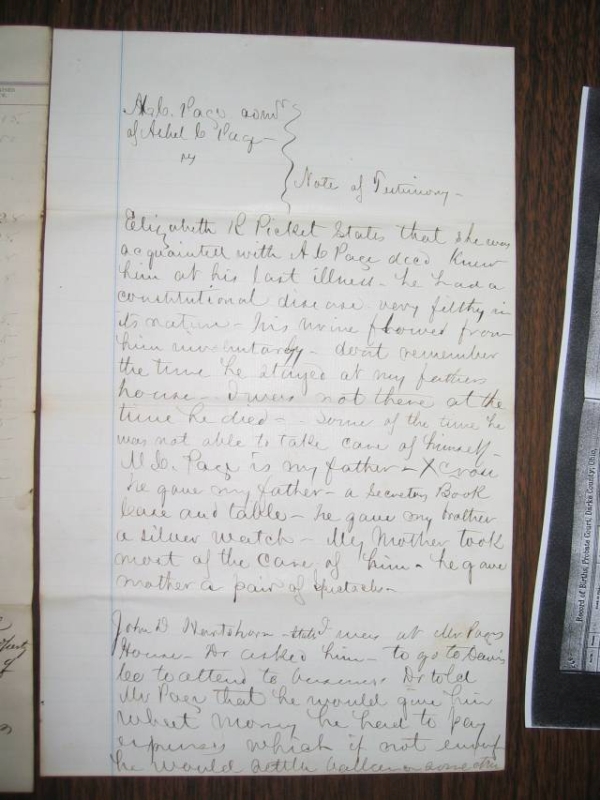 A. C. Page admr
of Ashel C Page
vs
Note of Testimony -
Elizabeth R Picket States that she was
acquainted with A C Page decd Knew
him at his last illness - he had a
constitutional disease very filthy in
its nature - his urine flowed from
him involuntarly - dont remember
the time he stayed at my fathers
house - I was not there at the
time he died - some of the time he
was not able to take care of himself -
M. C. Page is my father - X Cross
he gave my father - a Secretary Book
Case and table - he gave my brother
a silver watch - My Mother took
most of the care of him - he gave
mother a pair of Spectacles -
John D Hartshorn - stated was at Mr Pages
House - Dr asked him - to go to Davis
Co to attend to business Dr told
Mr Page that he would give him
what money he had to pay
expenses which if not enough
he would settle
Record of Births, Probate Court, Darke County, Ohio